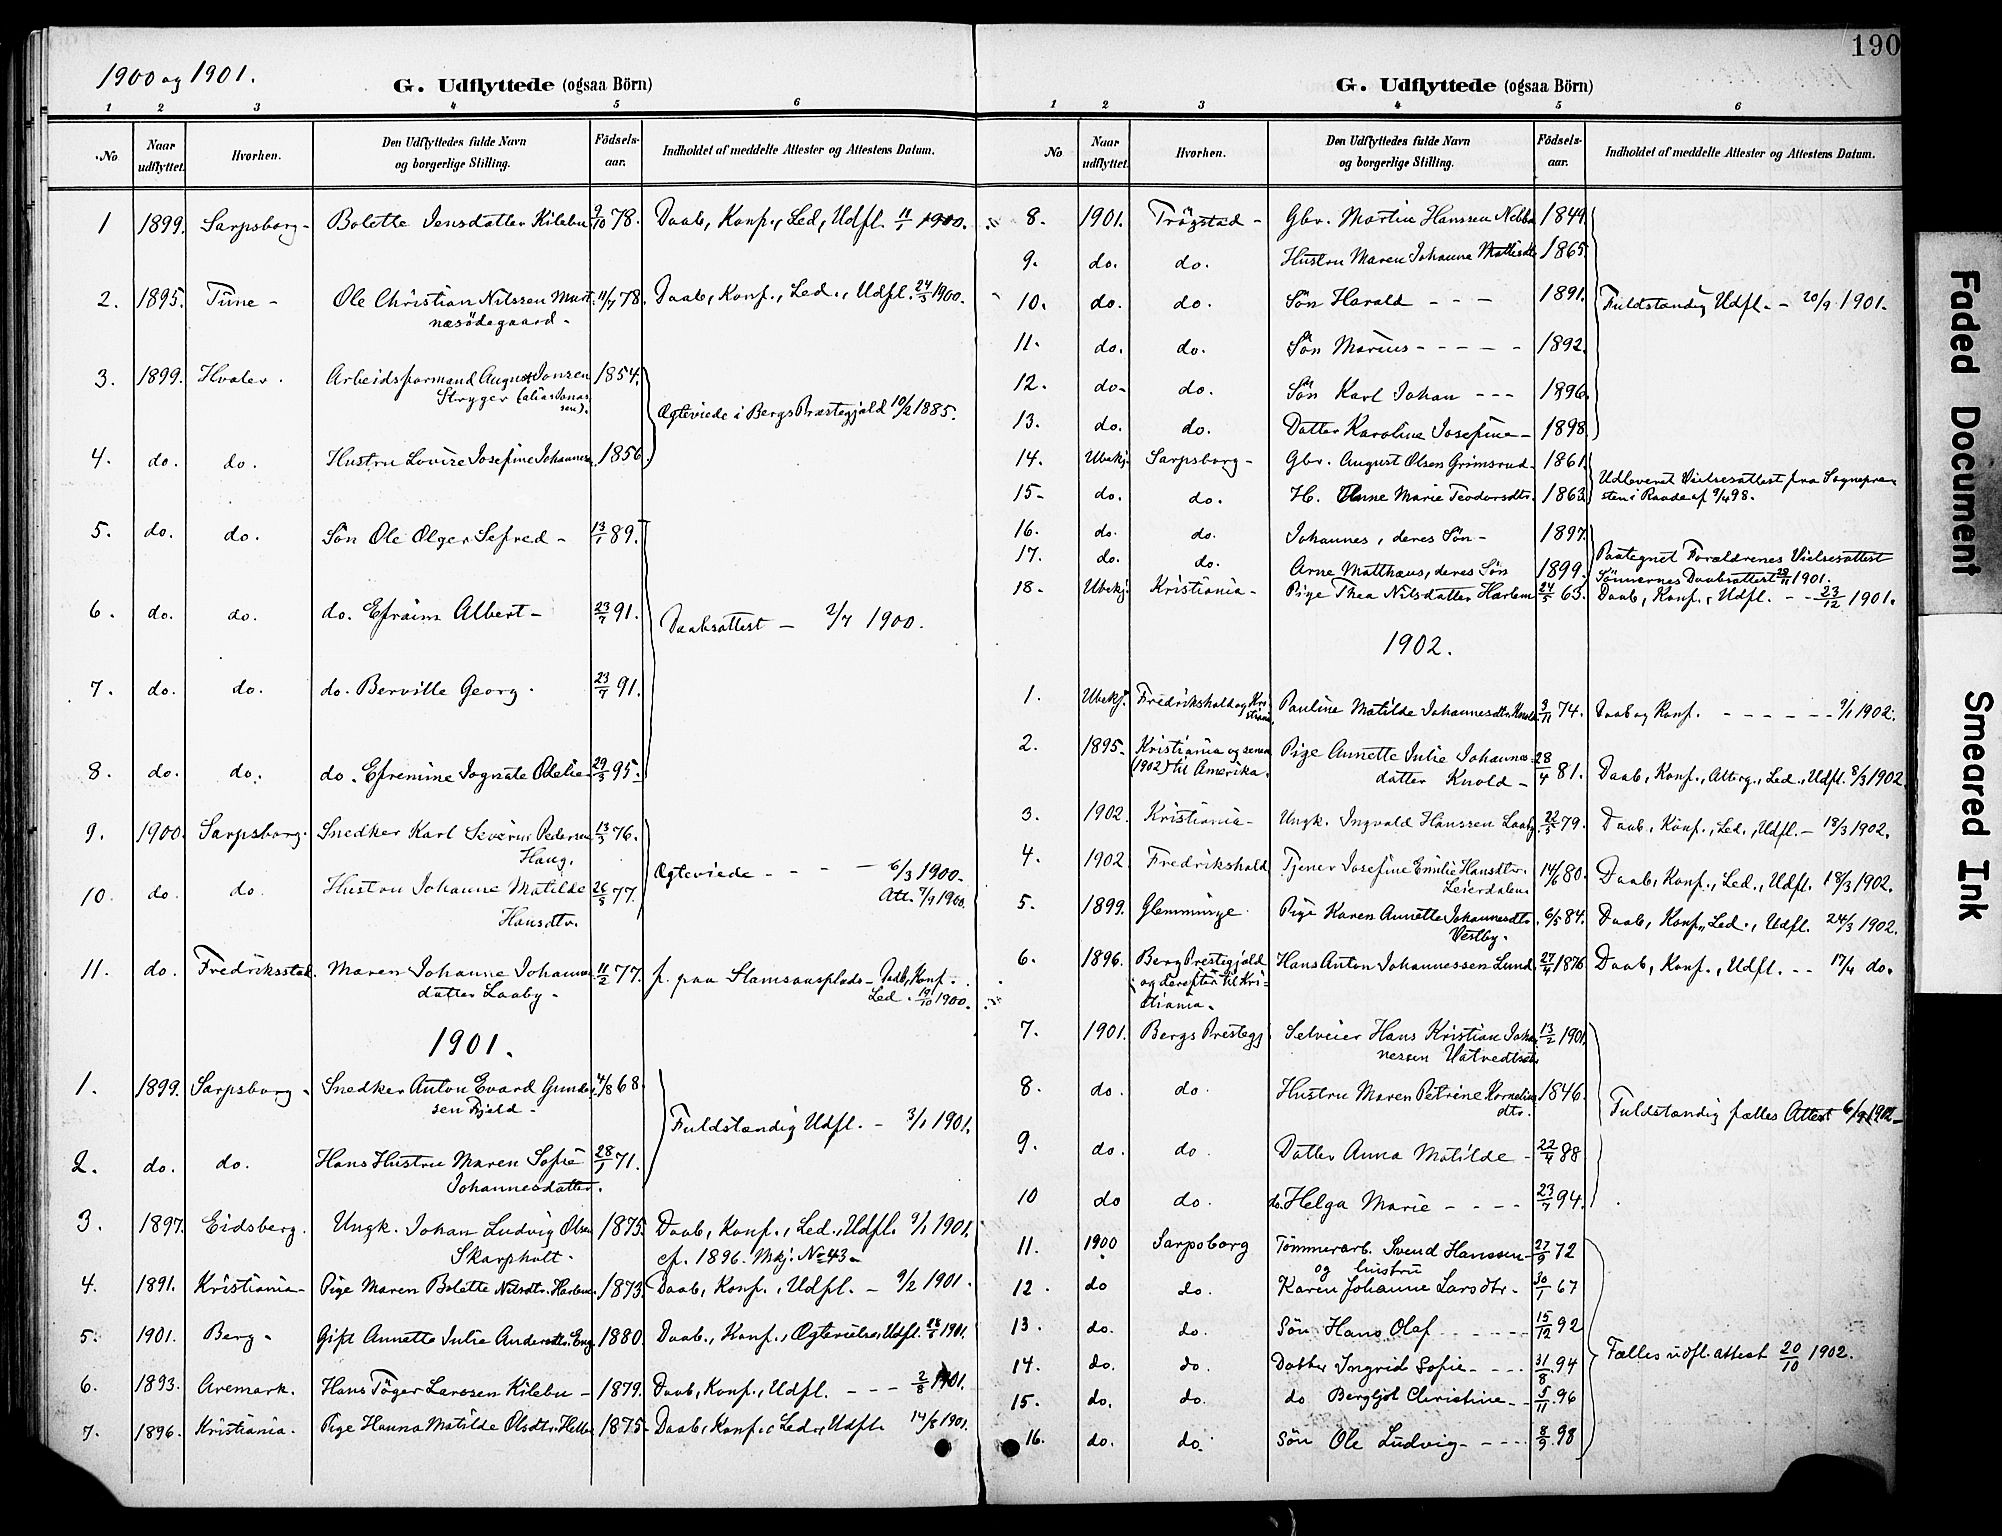 1900 og 1901.
G. Udflyttede (ogsaa Börn)
1 2 3 4 5 6
No
Naar udflyttet.
Hvorhen.
Den Udflyttedes fulde Navn og borgerlige Stilling.
Födsels-aar.
Indholdet af meddelte Attester og Attestens Datum.
1 1899. Sarpsborg - Bolette Jensdatter Kilebu 9/10 78. Daab, Konf., Led, Udfl. 11/1 1900.
2. 1895. Tune - Ole Christian Nilssen Mart 11/7 78. Daab, Konf., Led., Udfl. 24/5 1900.
næsödegaard -
3. 1899. Hvaler. Arbeidsformand August Jonsen 1854.
Stryger (alias Jonas
sen).
Ægteviede i Bergs Præstegjald 10/2 1885.
4. do. do. Hustru Lovise Josefine Johannes 1856
5. do. do. Sön Ole Olger Sefred - 13/1 89.
6. do. do. do. Efraim Albert - 23/7 91.
Daabsattest - 2/7 1900.
7. do. do. do. Berville Georg. 23/7 91.
8. do. do. do. Efremine Jognate Odelia 29/5 95.
9. 1900. Sarpsborg. Snedker Karl Severin Pedersen 13/5 76.
Haug.
Ægteviede - - - - 6/3 1900.
10. do. do. Hustru Johanne Matilde 26/5 77.
Att. 7/9 1900.
Hansdtr.
11. do. Fredriksstad. Maren Johanne Johannes 11/2 77. f. paa Slamsausplads - Daab, Konf.
datter Laaby - Led. 19/10 1900.
1901.
1. 1899. Sarpsborg - Snedker Anton Evard Gunder 4/8 68.
sen Fjeld -
Fuldstændig Udfl. - 3/1 1901.
2. do. do. Hans Hustru Maren Sofie 28/1 71.
Johannesdatter.
3. 1897. Eidsberg. Ungk. Johan Ludvig Olsen 1875. Daab, Konf., Led., Udfl. 9/1 1901.
Skarpholt. cf. 1896. Mkj. No 43 -
4. 1891. Kristiania - Pige Maren Bolette Nilsdtr. Harlem 1873. Daab, Konf., Udfl. - 9/2 1901.
5. 1901. Berg - Gift Annette Julie Andersdtr. Eng 1880 Daab., Konf., Ægtevielse, Udfl. 1901.
6. 1893. Aremark. Hans Töger Larssen Kilebu - 1879. Daab, Konf., Udfl. - - - 2/8 1901.
7. 1896. Kristiania. Pige Hanna Matilde Olsdtr. Helle 1875. Daab, Konf., Led., Udfl. 14/8 1901.
190
G. Udflyttede (ogsaa Börn)
1 2 3 4 5 6
No
Naar udflyttet.
Hvorhen.
Den Udflyttedes fulde Navn og borgerlige Stilling.
Födsels-aar.
Indholdet af meddelte Attester og Attestens Datum.
8. 1901. Trögstad - Gbr. Martin Hanssen Nebba 1849.
9. do. do. Hustru Maren Johanne Mattisdtr 1865.
10. do. do. Sön Harald - - - 1891. Fuldstændig Udfl. - 20/9 1901.
11. do. do. Sön Marius - - - - - 1892.
12. do. do. Sön Karl Johan - - - 1896.
13. do. do. Datter Karoline Josefine - 1898.
14. Ubekj. Sarpsborg - Gbr. August Olsen Grimsrud - 1861.
Udleveret Vielsesattest fra Sognepre-
15. do. do. H. Anne Marie Teodorsdtr. 1863. sten i Raade af 9/4 98.
16. do. do. Johannes, deres Sön - 1897.
Paategnet Forældrenes Vielsesattest
17. do. do. Arne Matthæus, deres Sön 1899. Sönnernes Daabsattest 28/11 1901.
18. Ubekj. Kristiania - Pige Thea Nilsdatter Harlem 24/5 63. Daab, Konf., Udfl. - - 23/12 1901.
1902.
1. Ubekj. Fredrikshald og Kri Pauline Matilde Johannesdtr. Knold 3/11 74. Daab og Konf. - - - - - - 9/1 1902.
stiania.
2. 1895. Kristiania og senere Pige Annette Julie Johannes- 28/4 81. Daab, Konf., Altrg., Led., Udfl. 8/3 1902.
(1902) til Amerika. datter Knold -
3. 1902. Kristiania - Ungk. Ingvald Hanssen Laaby. 22/5 79. Daab, Konf., Led., Udfl. - 18/3 1902.
4. 1902. Fredrikshald Tjener Josefine Emilie Hansdtr. 14/6 80. Daab, Konf., Led., Udfl. 18/3 1902.
Leierdalen.
5. 1899. Glemminge. Pige Karen Annette Johannesdtr. 6/5 84. Daab, Konf., Led., Udfl. 24/3 1902.
Vestby.
6. 1896. Berg Prestegjald Hans Anton Johannessen Lund 27/4 1876 Daab, Konf., Udfl. - - 17/4 do.
og derefter til Kri-
stiania.
7. 1901. Bergs Prestegj. Selveier Hans Kristian Johan 13/2 1901.
nessen Utvedtsæter
8. do. do. Hustru Maren Petrine Kornelius 1846.
dtr.
Fuldstændig fælles Attest 6/9 1902 -
9. do. do. Datter Anna Matilde - 22/4 88
10 do do. do. Helga Marie - - - - 23/7 94.
11. 1900 Sarpsborg Tömmerarb. Svend Hanssen - 27/9 72
og hustru
12. do do. Karen Johanne Larsdtr. - 30/1 67
13. do. do. Sön Hans Olaf - - - - - 15/12 92
Fælles udfl. attest 20/10 1902.
14. do. do. Datter Ingrid Sofie - - - 31/8 94
15. do. do. do Bergljot Christine - - 5/11 96
16. do. do. Sön Ole Ludvig - - - - 8/9 98
Faded Document
Smeared Ink